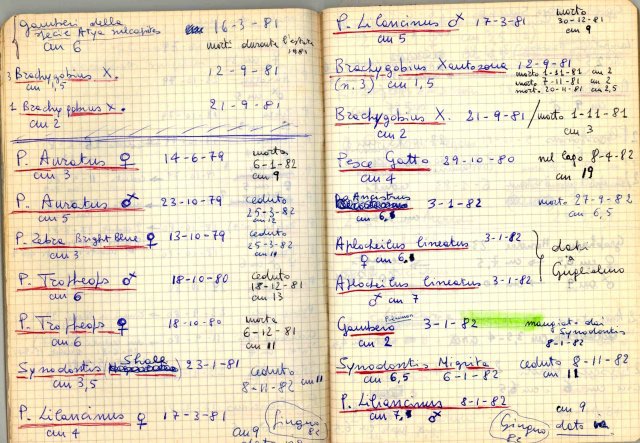 gamberi della 16-3-81
specie Atya
cm 6 morti durante l'estate
1981
3 Brachygobius X. 12-9-81
cm 1,5
1 Brachygobius X. 21-9-81
cm 2
P. Auratus ♀ 14-6-79 morta
cm 3 6-1-82
cm 9
P. Auratus ♂ 23-10-79 ceduto
cm 5 25-3-82
cm 12
P. Zebra Bright Blue ♀ 13-10-79 ceduto
cm 3 25-3-82
P. Tropheops ♂ 18-10-80 ceduto
cm 6 18-12-81
cm 13
P. Tropheops ♀ 18-10-80 morta
cm 6 6-12-81
cm 11
Synodontis Shale 23-1-81 ceduto
cm 3,5 8-11-82 cm 11
P. Lilancinus ♀ 17-3-81
cm 4 cm 9 Giugno
82
P. Lilancinus ♂ 17-3-81 morto
cm 5 30-12-81
cm 9
Brachygobius Xantozona 12-9-81
(n. 3) cm 1,5 morto 1-11-81 cm 2
morto 7-11-81 cm 2
morto 20-11-81 cm 2,5
Brachygobius X. 21-9-81 / morto 1-11-81
cm 2 cm 3
Pesce Gatto 29-10-80 nel lago 8-4-82
cm 4 cm 19
Ancistrus 3-1-82 morto 27-9-82
cm 6,5 cm 6,5
Aplocheilus lineatus 3-1-82
♀ cm 6,5 dati
a
Guglielmo
Aplocheilus lineatus 3-1-82
♂ cm 7
Gambero 3-1-82 mangiato dai
cm 2 Synodontis
8-1-82
Synodontis Nigrita ceduto 8-11-82
cm 6,5 6-1-82 cm 11
P. Lilancinus 8-1-82 cm 9
cm 7,5 ♂ Giugno dato
82